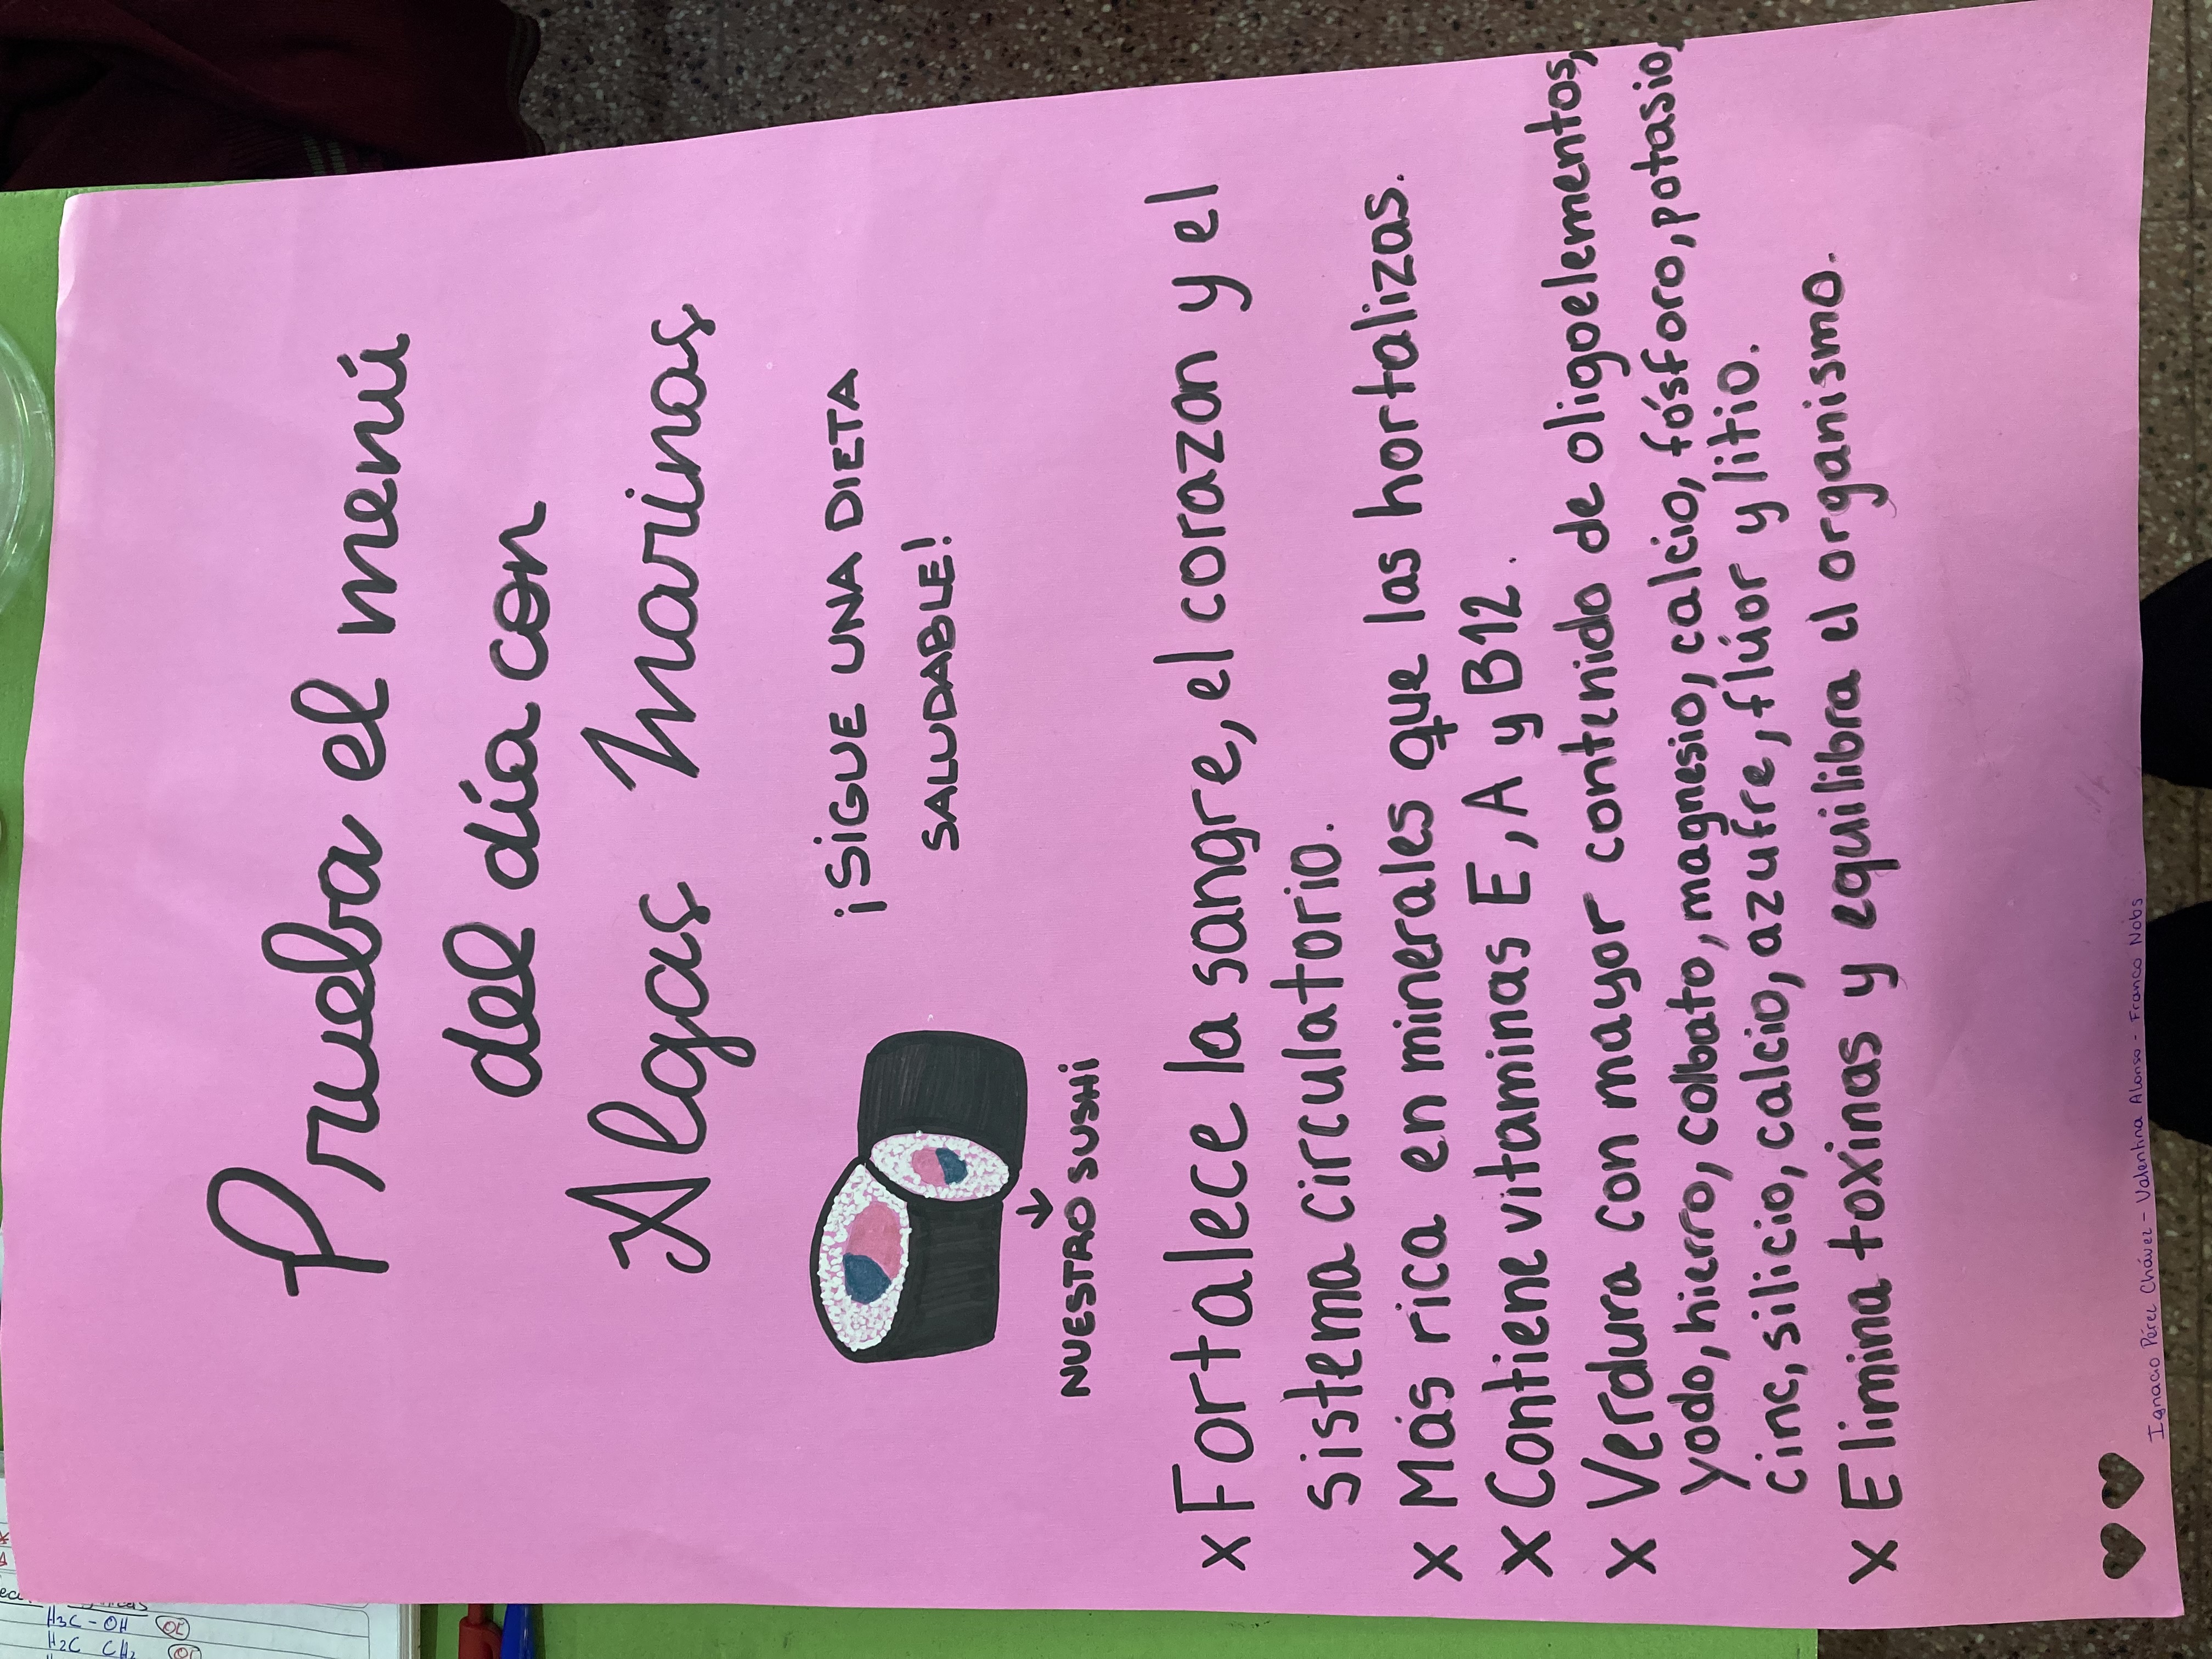 Prueba el menú
del día con
Algas Marinas
¡SIGUE UNA DIETA
SALUDABLE!
NUESTRO SUSHI
x Fortalece la sangre, el corazon y el
sistema circulatorio.
x Más rica en minerales que las hortalizas.
x Contiene vitaminas E, A y B12.
x Verdura con mayor contenido de oligoelementos,
yodo, hierro, colbato, magnesio, calcio, fósforo, potasio,
cinc, silicio, calcio, azufre, flúor y litio.
x Elimina toxinas y equilibra el organismo.
Ignacio Pérez Chávez - Valentina Alonso - Franco Nobs
H3C - OH
H2C CH2